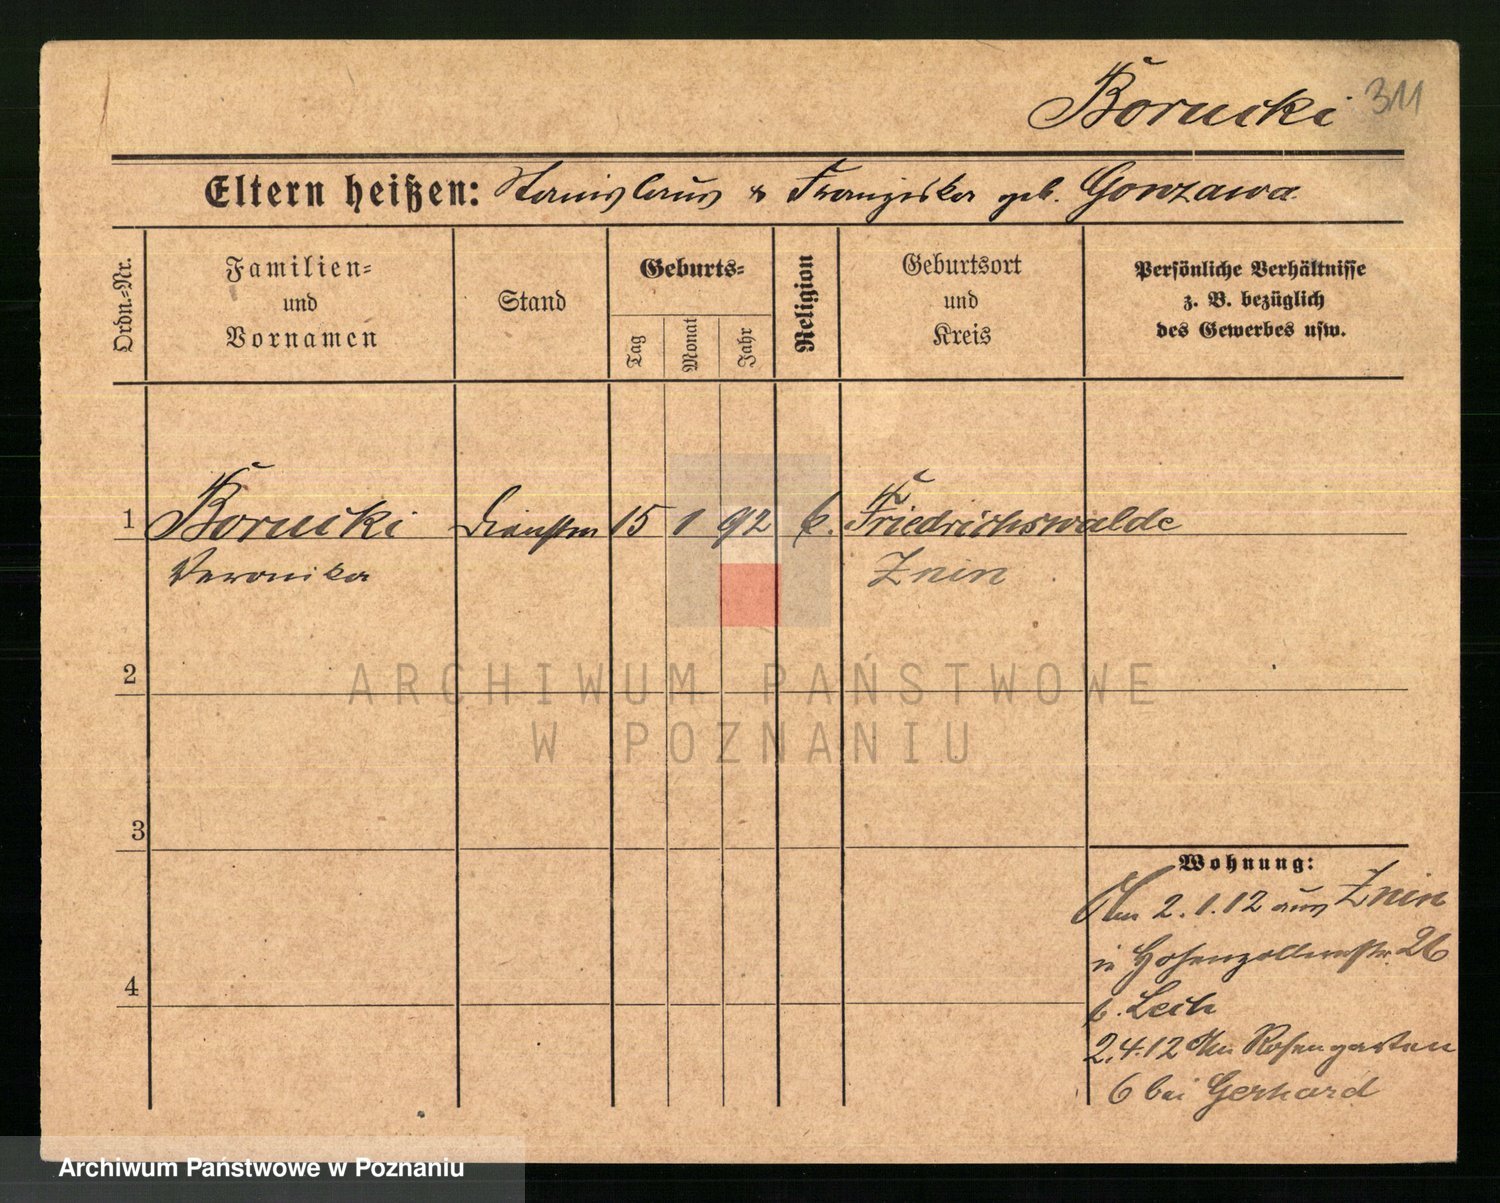 Borucki 311
Eltern heißen: Stanislaus & Franziska geb. Gonzawa
Ordn.=Nr.
Familien=
und
Vornamen
Stand
Geburts=
Tag
Monat
Jahr
Religion
Geburtsort
und
Kreis
Persönliche Verhältnisse
z. B. bezüglich
des Gewerbes usw.
1 Borucki 15 1 92 k. Friedrichswalde
Veronika Znin
2
ARCHIWUM PAŃSTWOWE
W POZNANIU
3
4
Wohnung:
2.1.12 aus Znin
in Hohenzollernstr. 26
b. Lech
2.4.12 Rosengarten
6 bei Gerhard
Archiwum Państwowe w Poznaniu